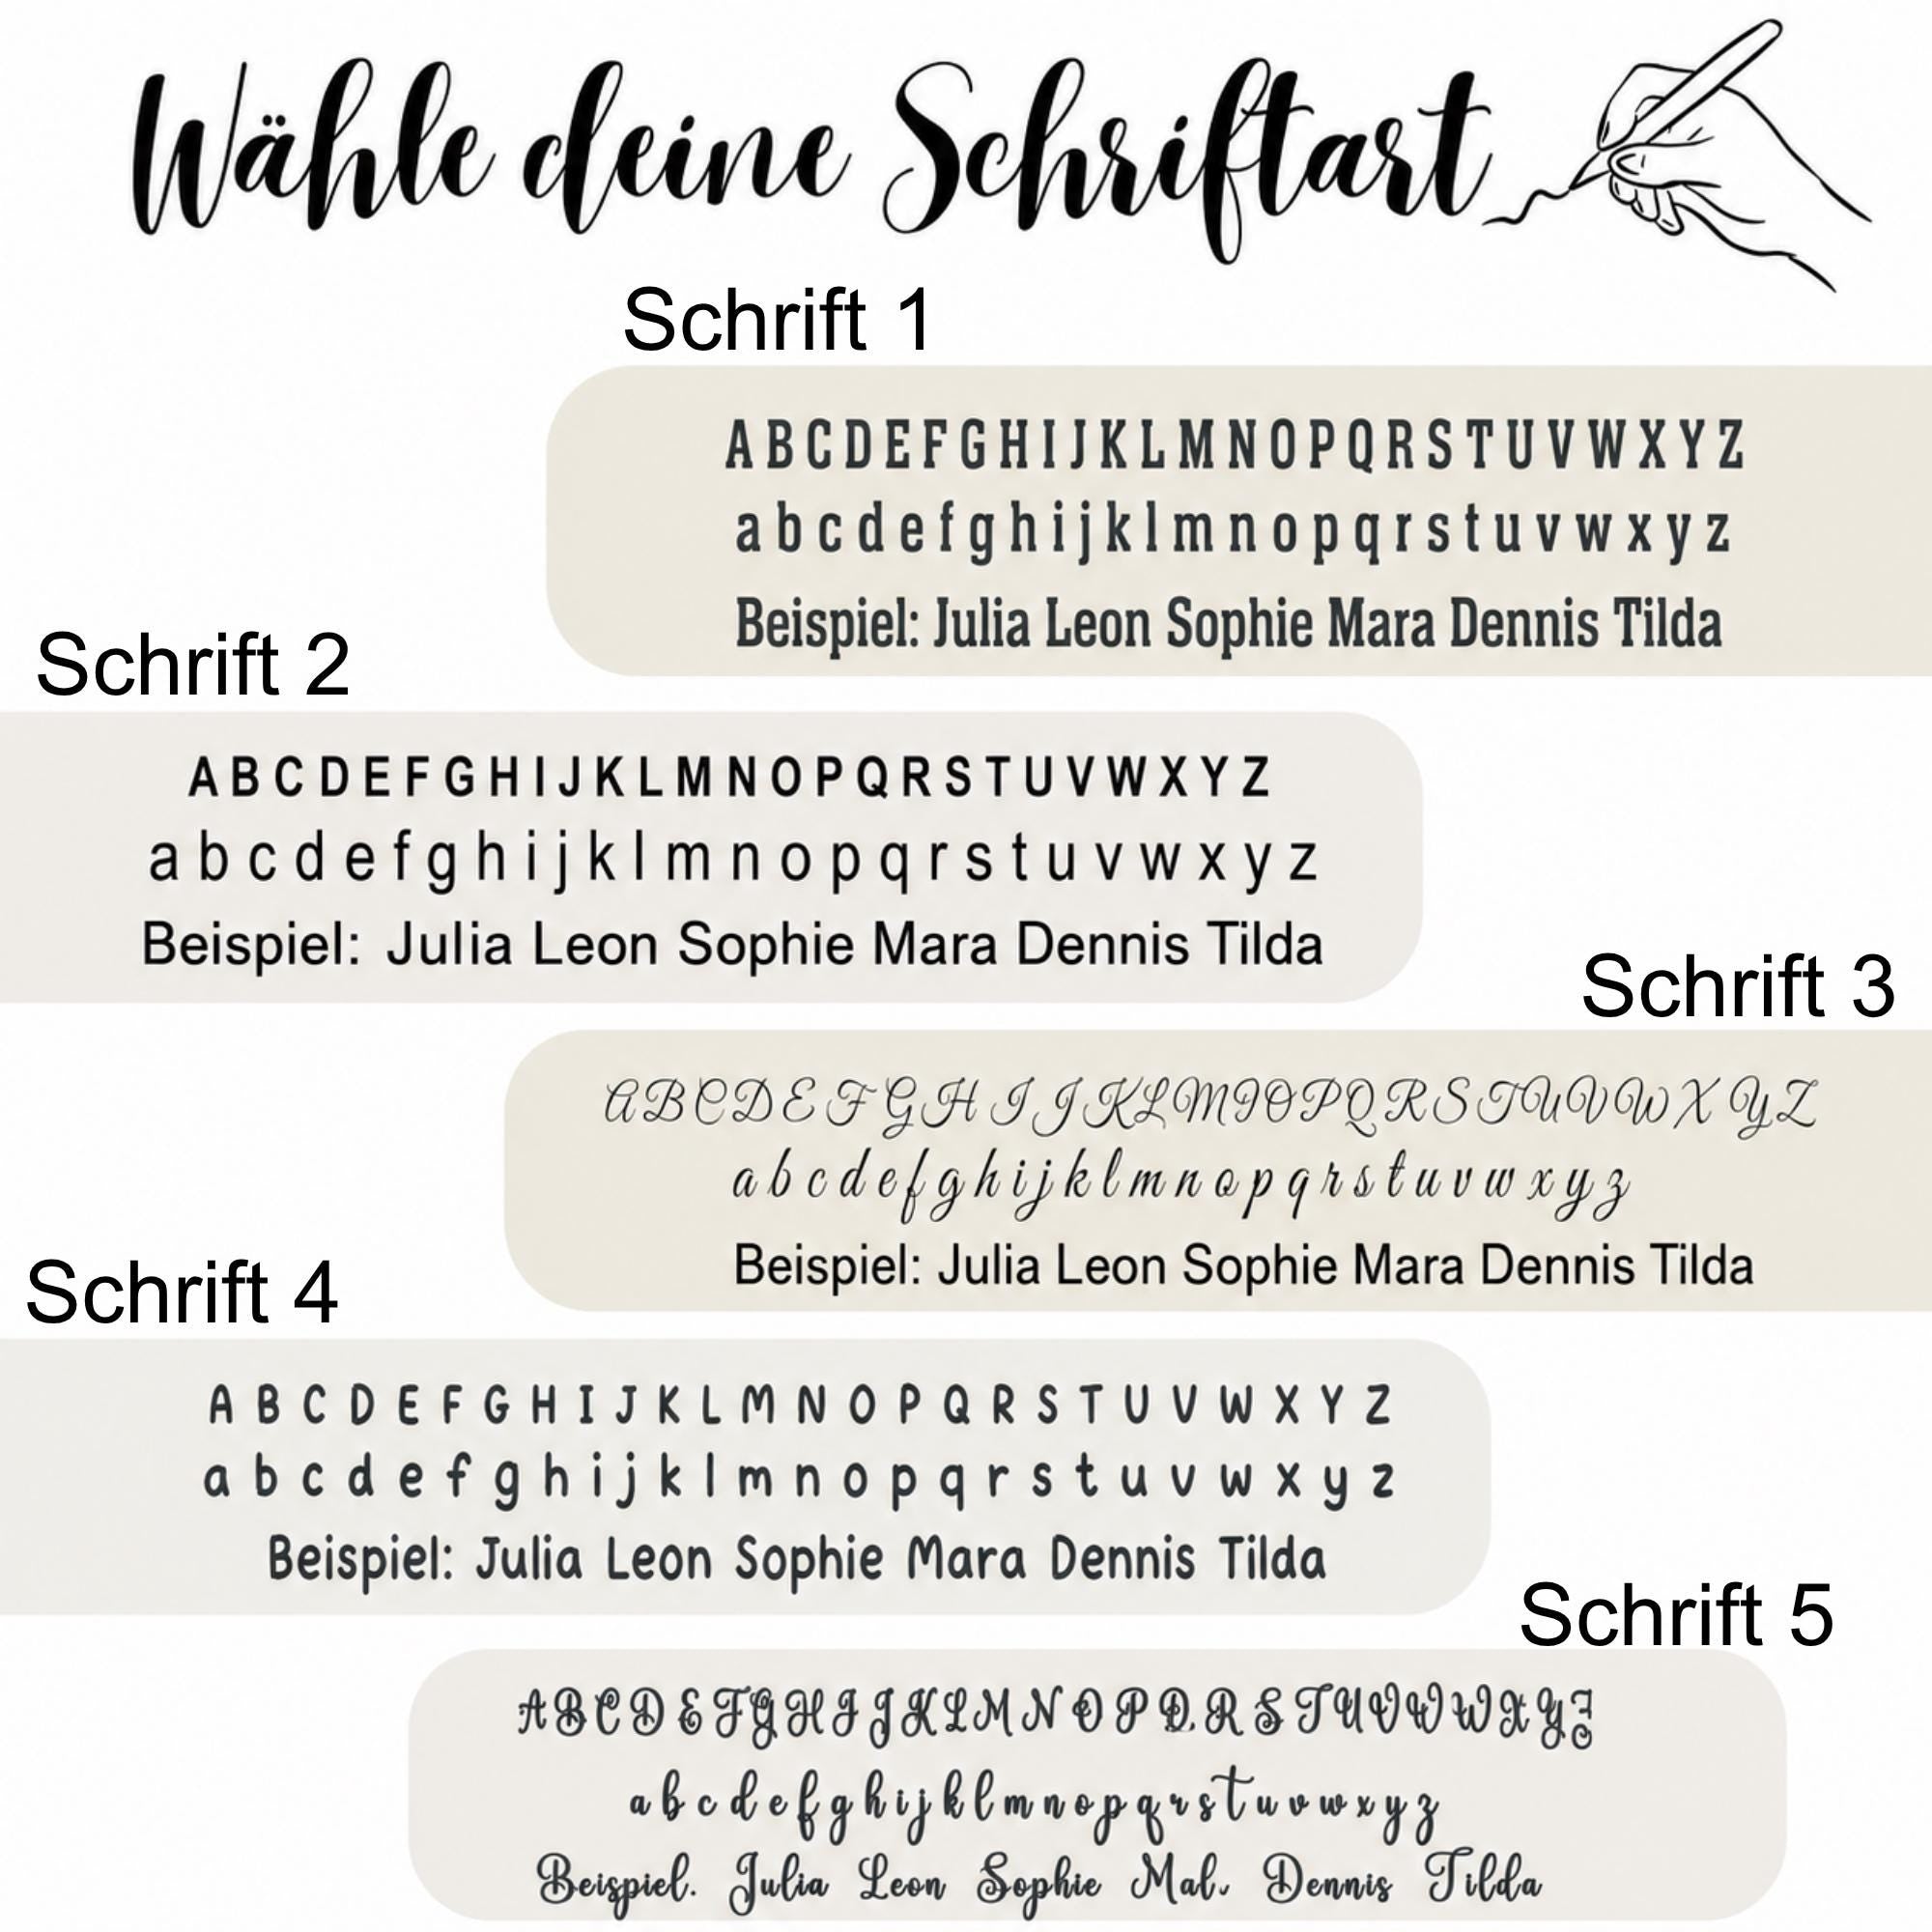 Wähle deine Schriftart
Schrift 1
A B C D E F G H I J K L M N O P Q R S T U V W X Y Z
a b c d e f g h i j k l m n o p q r s t u v w x y z
Beispiel: Julia Leon Sophie Mara Dennis Tilda
Schrift 2
A B C D E F G H I J K L M N O P Q R S T U V W X Y Z
a b c d e f g h i j k l m n o p q r s t u v w x y z
Beispiel: Julia Leon Sophie Mara Dennis Tilda
Schrift 3
A B C D E F G H I J K L M O P Q R S T U V W X Y Z
a b c d e f g h i j k l m n o p q r s t u v w x y z
Beispiel: Julia Leon Sophie Mara Dennis Tilda
Schrift 4
A B C D E F G H I J K L M N O P Q R S T U V W X Y Z
a b c d e f g h i j k l m n o p q r s t u v w x y z
Beispiel: Julia Leon Sophie Mara Dennis Tilda
Schrift 5
A B C D E F G H I J K L M N O P Q R S T U V W W X Y Z
a b c d e f g h i j k l m n o p q r s t u v w x y z
Beispiel. Julia Leon Sophie Mal. Dennis Tilda